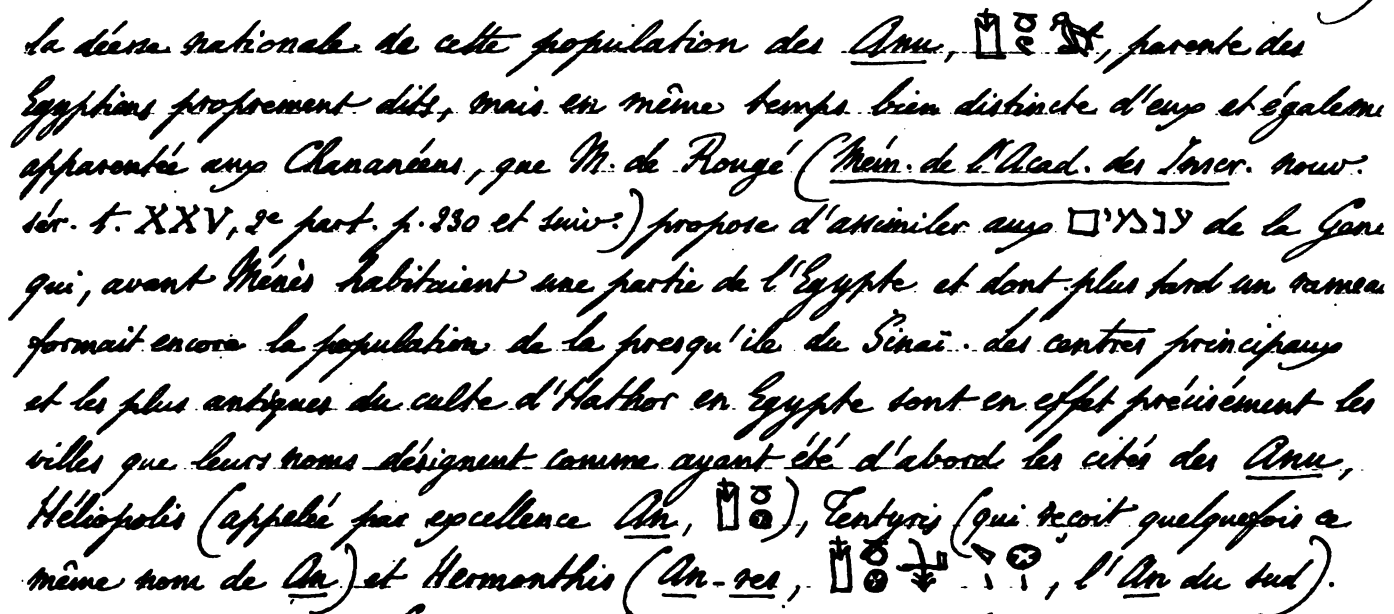 la déesse nationale de cette population des Anu, parente des
Egyptiens proprement dits, mais en même temps bien distincte d'eux et égaleme
apparentée aux Chananéens, que M. de Rougé (Mém. de l'Acad. des Inscr. nouv.
sér. t. XXV, 2e part. p. 230 et suiv.) propose d'assimiler aux ענמים de la Gene
qui, avant Ménès habitaient une partie de l'Egypte et dont plus tard un ramea
formait encore la population de la presqu'ile du Sinaï. des centres principaux
et les plus antiques du culte d'Hathor en Egypte sont en effet précisément les
villes que leurs noms désignent comme ayant été d'abord les cités des Anu,
Héliopolis (appelée par excellence An, ), Tentyris (qui reçoit quelquefois ce
même nom de An) et Hermonthis (An-res, , l'An du sud).